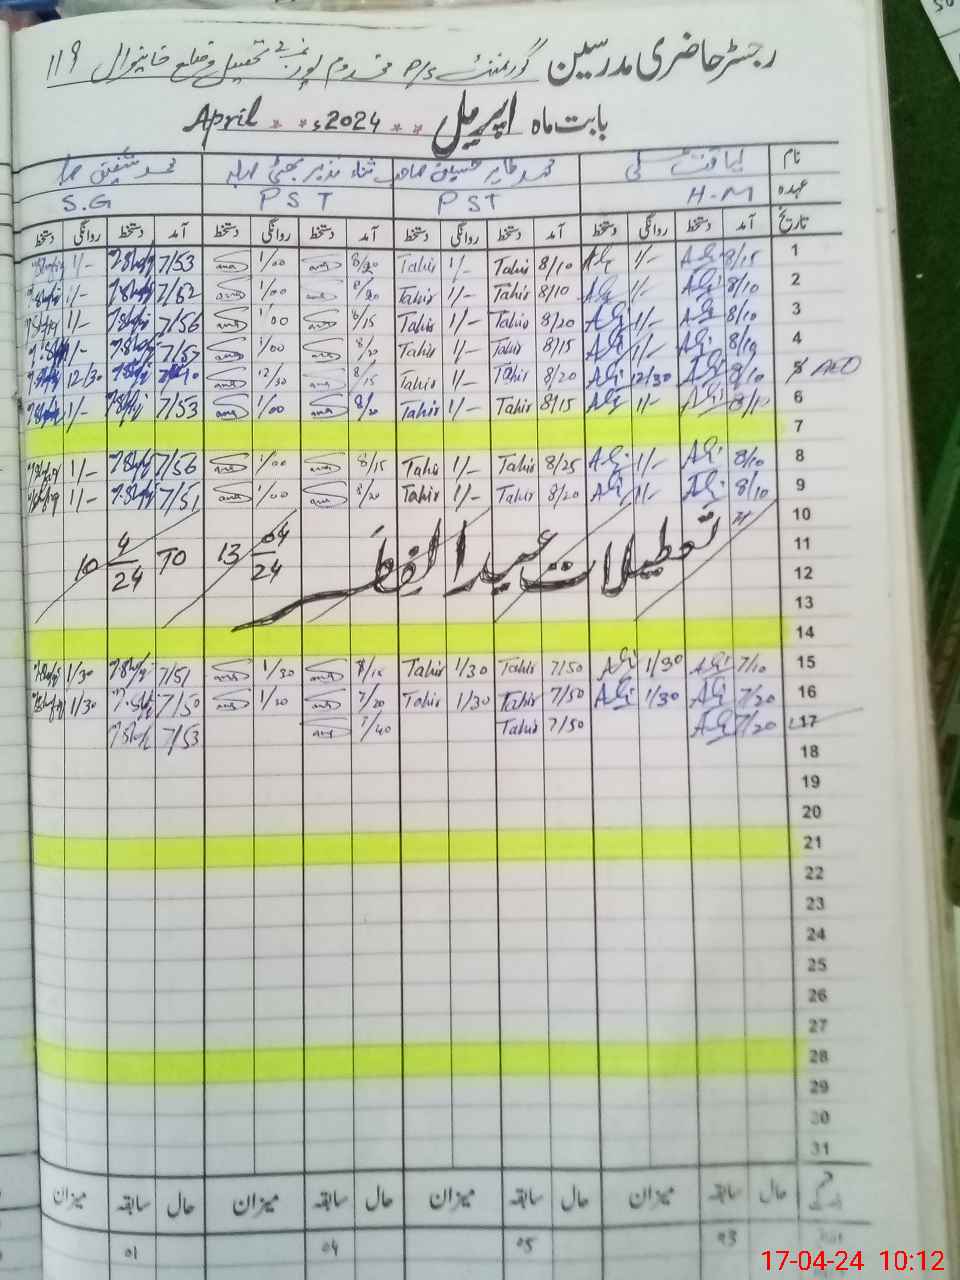 رجسٹر حاضری مدرسین گورنمنٹ P/S مخدوم پور تحصیل و ضلع خانیوال 119
بابت ماہ اپریل ** 2024ء ** April
نام لیاقت علی محمد طاہر حسین صاحب ثناء نذیر بھٹی محمد شفیق
عہدہ H-M PST PST S.G
تاریخ آمد دستخط روانگی دستخط آمد دستخط روانگی دستخط آمد دستخط روانگی دستخط آمد دستخط روانگی دستخط
1 8/15 Ali 1/- Ali 8/10 Tahir 1/- Tahir 8/20 1/00 7/53 1/-
2 8/10 Ali 1/- Ali 8/10 Tahir 1/- Tahir 8/20 1/00 7/52 1/-
3 8/10 Ali 1/- Ali 8/20 Tahir 1/- Tahir 8/15 1/00 7/56 1/-
4 8/10 Ali 1/- Ali 8/15 Tahir 1/- Tahir 8/20 1/00 7/57 1/-
AEO 5 8/10 Ali 12/30 Ali 8/20 Tahir 1/- Tahir 8/15 12/30 12/30
6 8/10 Ali 1/- Ali 8/15 Tahir 1/- Tahir 8/20 1/00 7/53 1/-
7
8 8/10 Ali 1/- Ali 8/25 Tahir 1/- Tahir 8/15 1/00 7/56 1/-
9 8/10 Ali 1/- Ali 8/20 Tahir 1/- Tahir 8/20 1/00 7/51 1/-
10
11 تعطیلات عید الفطر 10 4/24 TO 13 04/24
12
13
14
15 7/10 Ali 1/30 Ali 7/50 Tahir 1/30 Tahir 7/15 1/30 7/51 1/30
16 7/20 Ali 1/30 Ali 7/50 Tahir 1/30 Tahir 7/20 1/30 7/50 1/30
17 7/20 Ali 7/50 Tahir 7/40 7/53
18
19
20
21
22
23
24
25
26
27
28
29
30
31
حال سابقہ میزان حال سابقہ میزان حال سابقہ میزان حال سابقہ میزان
03 05 04 01
17-04-24 10:12